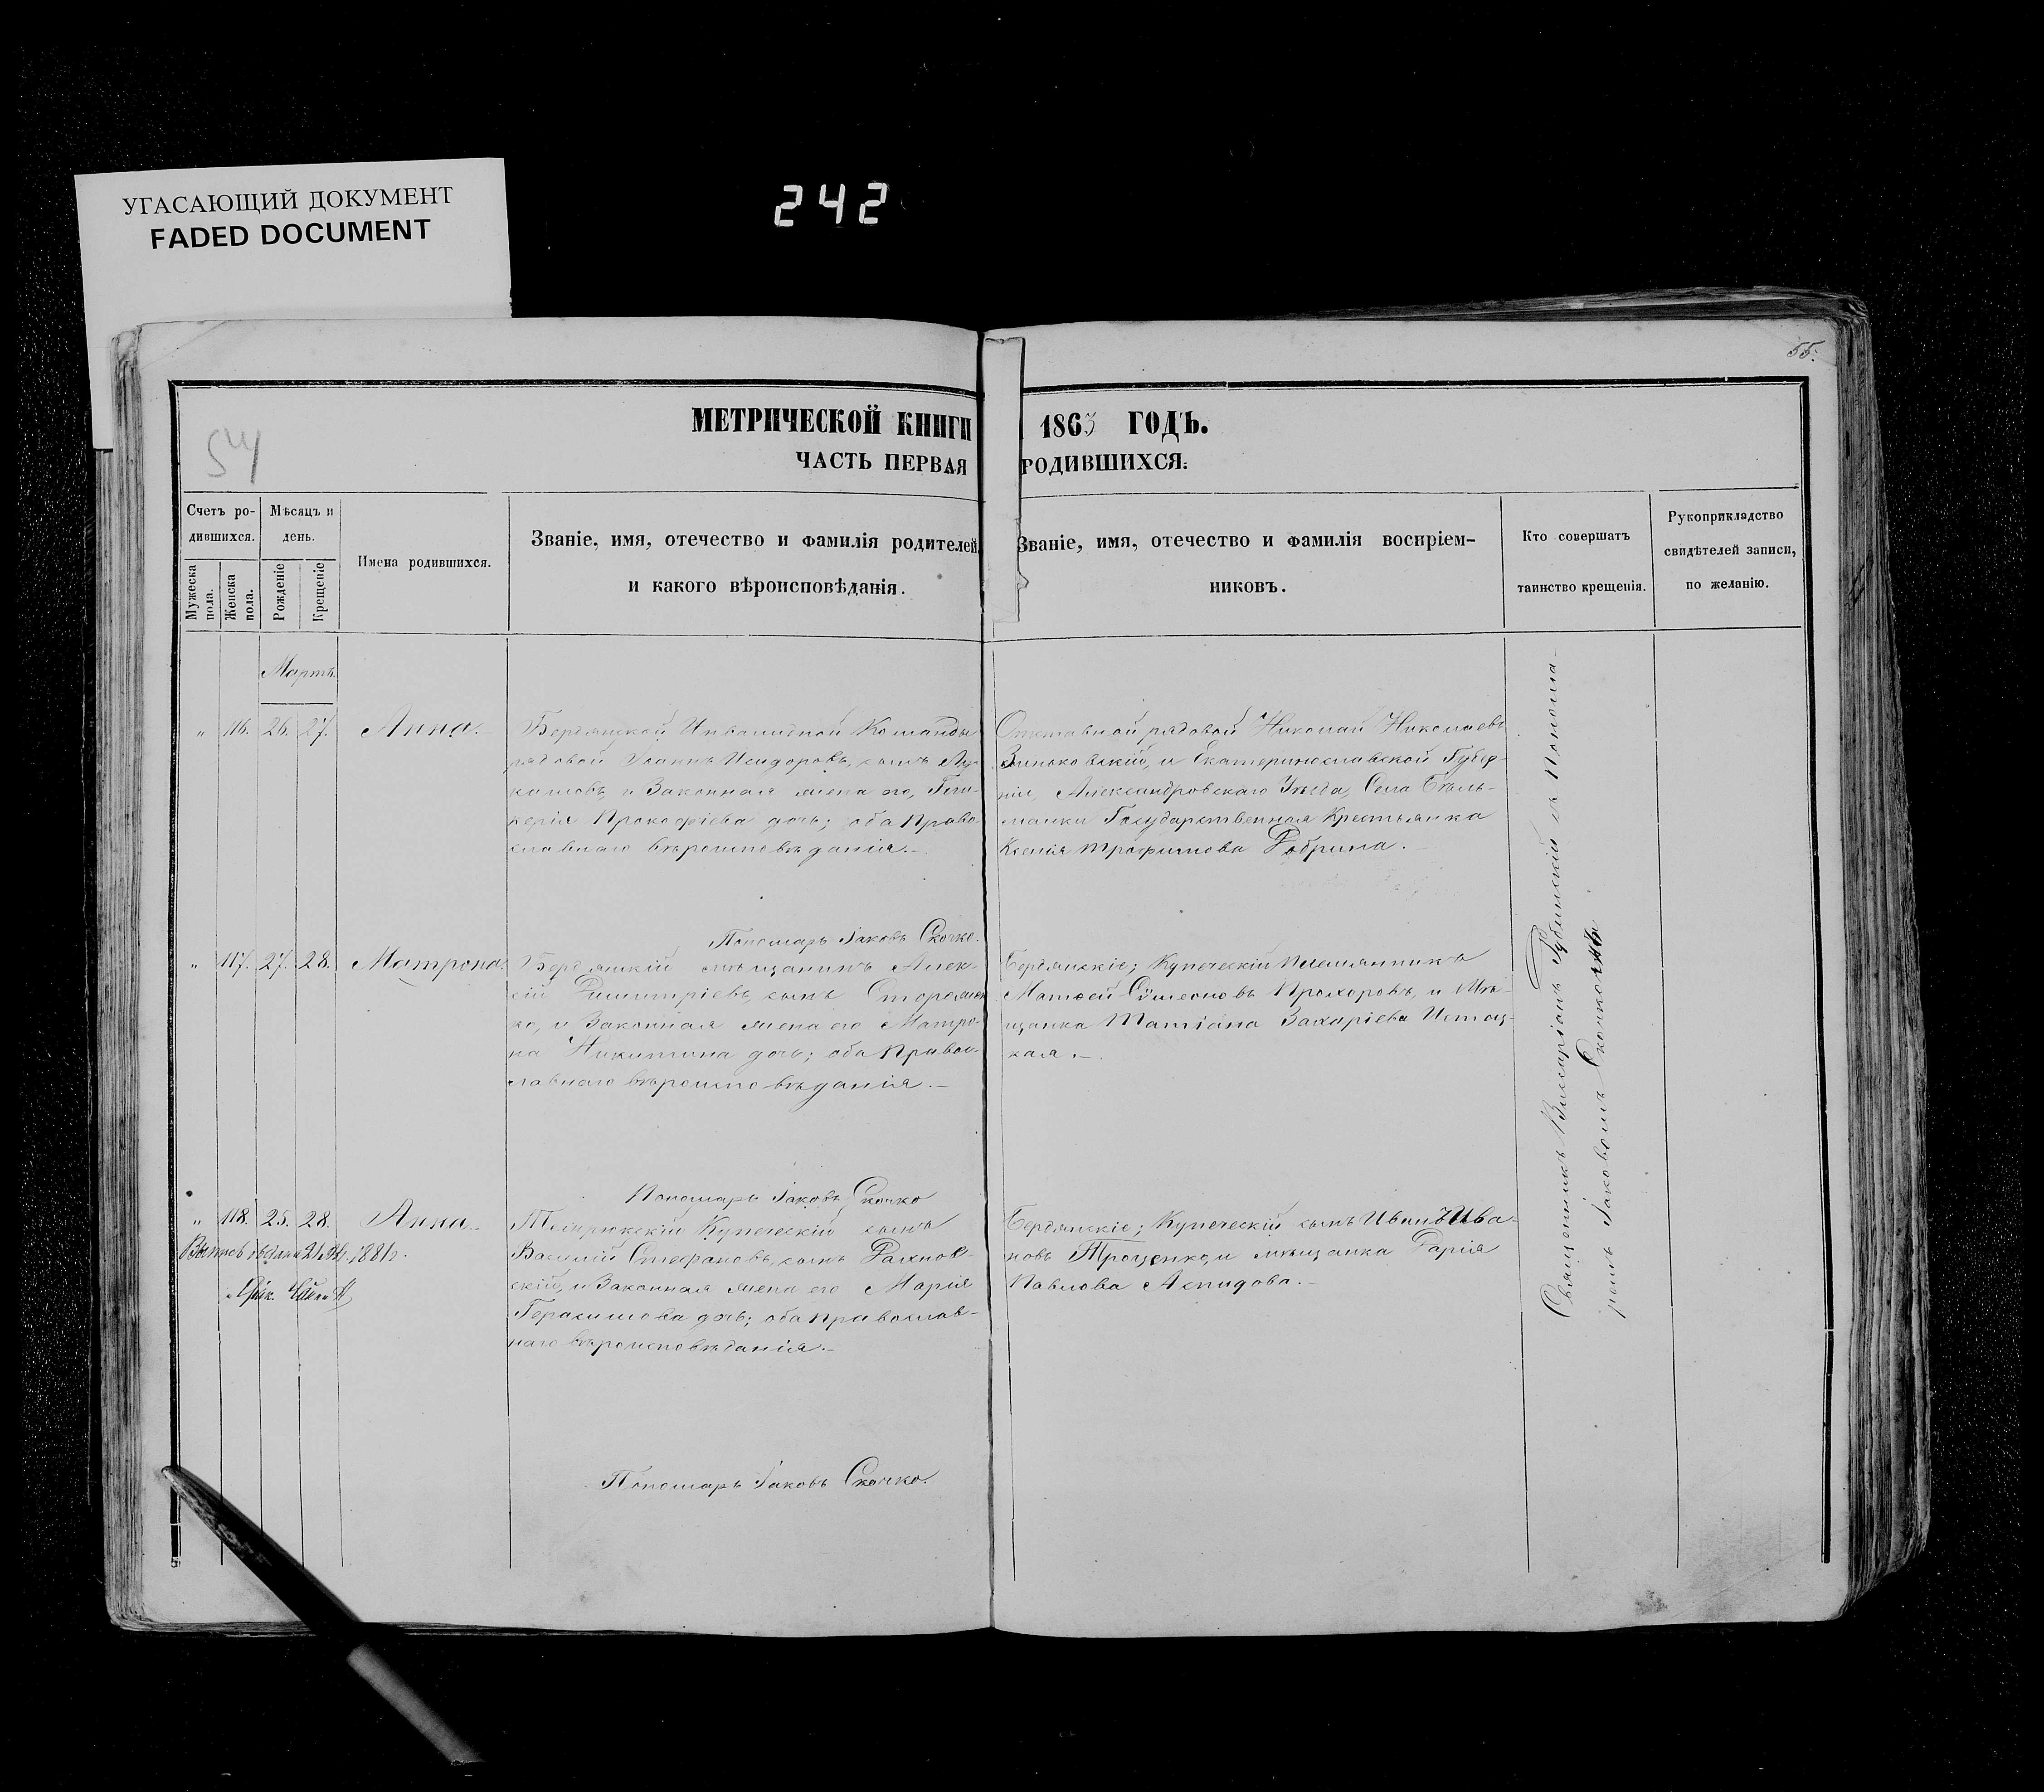 УГАСАЮЩИЙ ДОКУМЕНТ
FADED DOCUMENT
242
55.
54
МЕТРИЧЕСКОЙ КНИГИ 1863 ГОДЪ.
ЧАСТЬ ПЕРВАЯ РОДИВШИХСЯ:
Счетъ ро-
дившихся.
Мужеска пола.
Женска пола.
Мѣсяцъ и
день.
Рожденіе
Крещеніе
Имена родившихся.
Званіе, имя, отечество и фамилія родителей
и какого вѣроисповѣданія.
Званіе, имя, отечество и фамилія воспріем-
никовъ.
Кто совершатъ
таинство крещенія.
Рукоприкладство
свидѣтелей записи,
по желанію.
Мартъ.
" 116. 26. 27. Анна.
Бердянской Инвалидной Команды
рядовой Іоаннъ Исидоровъ, сынъ Лу-
, и Законная жена его, Гли-
керія Прокофіева дочь; оба Право-
славнаго вѣроисповѣданія.
Отставной рядовой Николай Николаевъ
Зиньковскій, и Екатеринославской Губер-
ніи, Александровскаго Уѣзда, Села Бѣль-
манки Государственная Крестьянка
Ксенія Трофимова
Пономарь Іаковъ Скочко.
" 117. 27. 28. Матрона.
Бердянскій мѣщанинъ Алек-
сій Димитріевъ, сынъ Сторожен 
ко, и Законная жена его Матро-
на Никитина дочь; оба Правос-
лавнаго вѣроисповѣданія.
Бердянскіе; Купеческій племянникъ
Матѳей Сѵмеоновъ Прохоровъ, и Мѣ-
щанка Татіана Захаріева
кая.
Пономарь Іаковъ Скочко
" 118. 25. 28. Анна.
Темрюкскій Купеческій сынъ
Василій Стефановъ, сынъ Рахнов-
скій, и Законная жена его Марія
Герасимова дочь; оба Православ-
наго вѣроисповѣданія.
Бердянскіе; Купеческій сынъ Иванъ Ива-
новъ Троценко, и мѣщанка Дарія
Павлова Аспидова.
1881г.
Пономарь Іаковъ Скочко.
Священникъ Виссаріонъ съ Понома-
ремъ Іаковомъ Скочкомъ